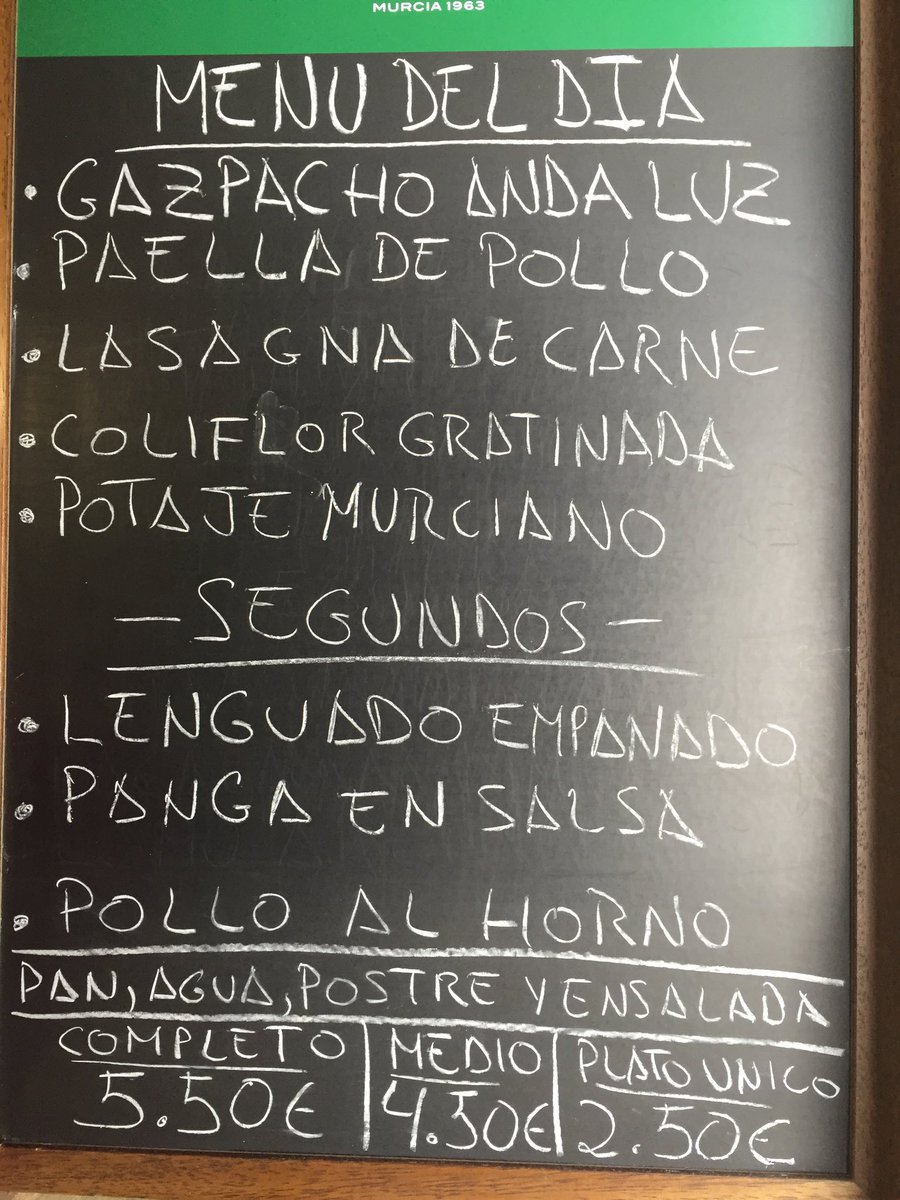 MURCIA 1963
MENU DEL DIA
• GAZPACHO ANDALUZ
• PAELLA DE POLLO
• LASAGNA DE CARNE
• COLIFLOR GRATINADA
• POTAJE MURCIANO
— SEGUNDOS —
• LENGUADO EMPANADO
• PANGA EN SALSA
• POLLO AL HORNO
PAN, AGUA, POSTRE Y ENSALADA
COMPLETO MEDIO PLATO UNICO
5.50€ 4.50€ 2.50€